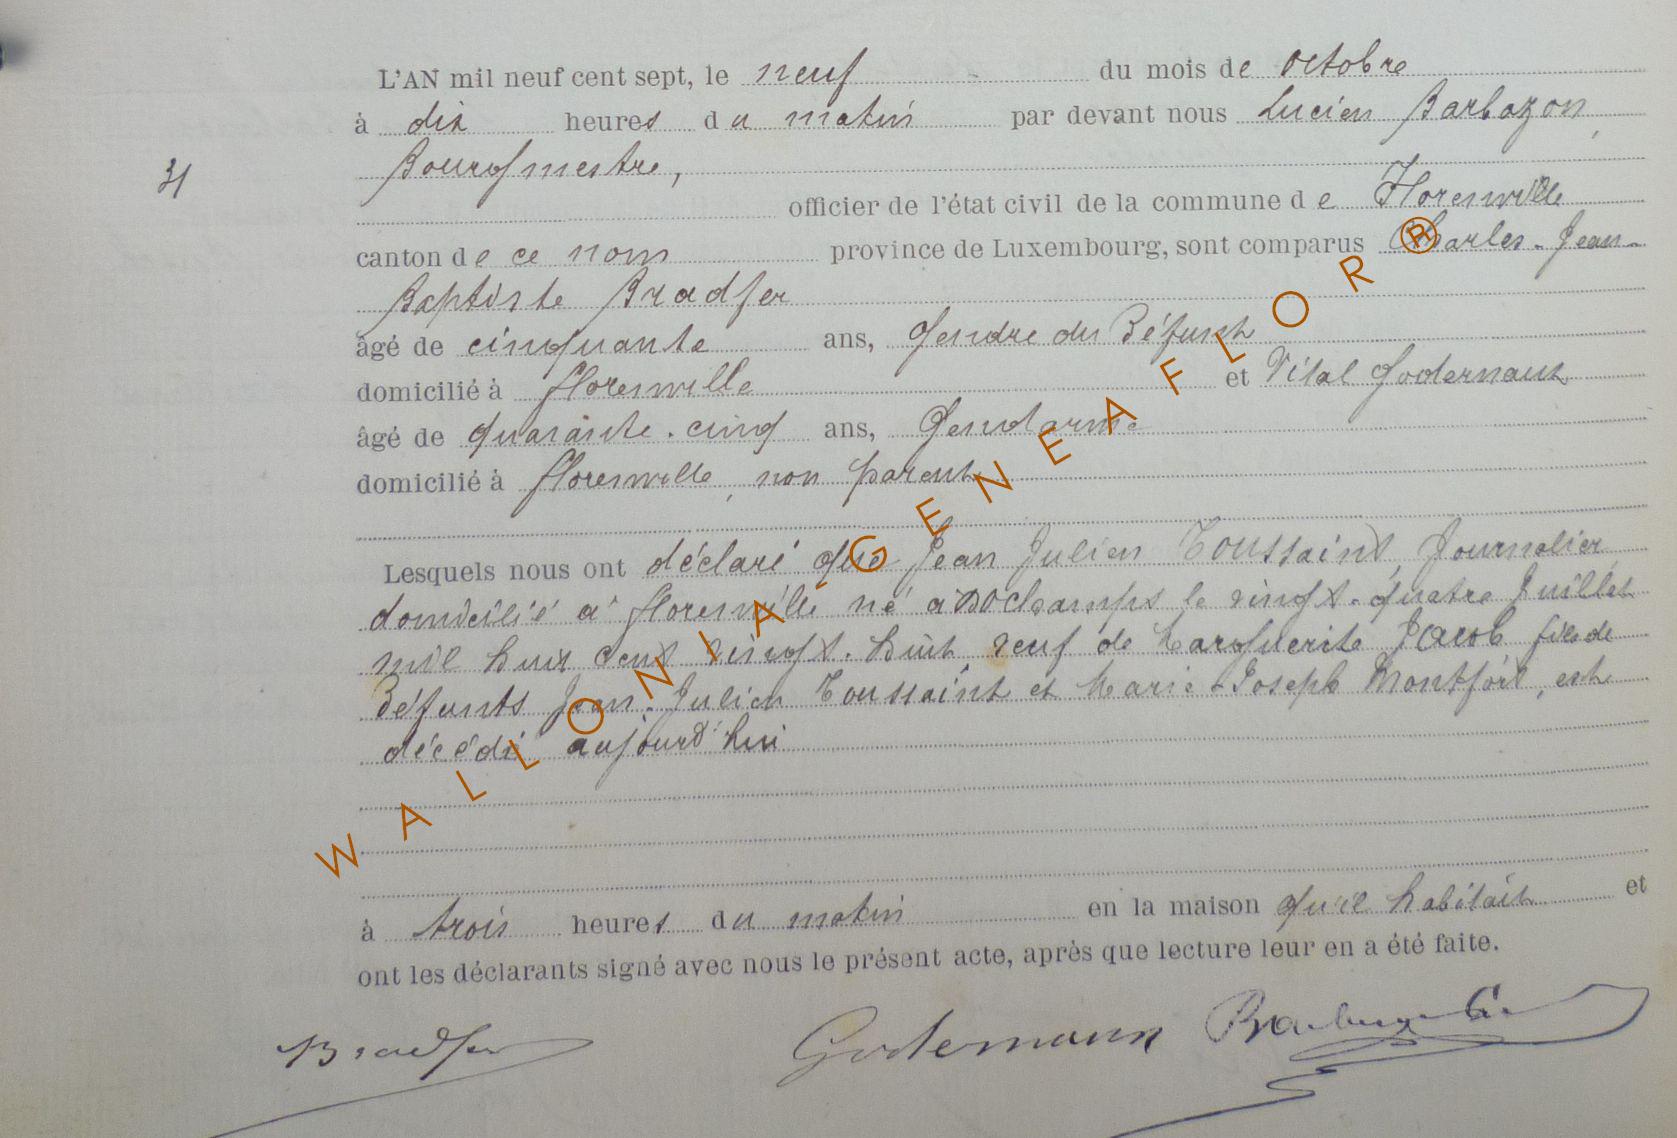 L'AN mil neuf cent sept, le neuf du mois de Octobre
à dix heures du matin par devant nous Lucien Barbazon,
31
Bourgmestre,
officier de l'état civil de la commune de Florenville
canton de ce nom province de Luxembourg, sont comparus Charles-Jean-
Baptiste Bradfer
âgé de cinquante ans, Gendre du Défunt
domicilié à Florenville et Vital Godernaux
âgé de quarante-cinq ans, Gendarme
domicilié à Florenville, non parent
Lesquels nous ont déclaré que Jean Julien Toussaint, Journalier
domicilié à Florenville né à Dochamps le vingt-quatre Juillet
mil huit cent vingt-huit veuf de Marguerite Jacob fils de
Défunts Jean-Julien Toussaint et Marie-Joseph Montfort, est
décédé aujourd'hui
à trois heures du matin en la maison qu'il habitait et
ont les déclarants signé avec nous le présent acte, après que lecture leur en a été faite.
Bradfer Godernaux
WALLONIA GENEAFLOR®